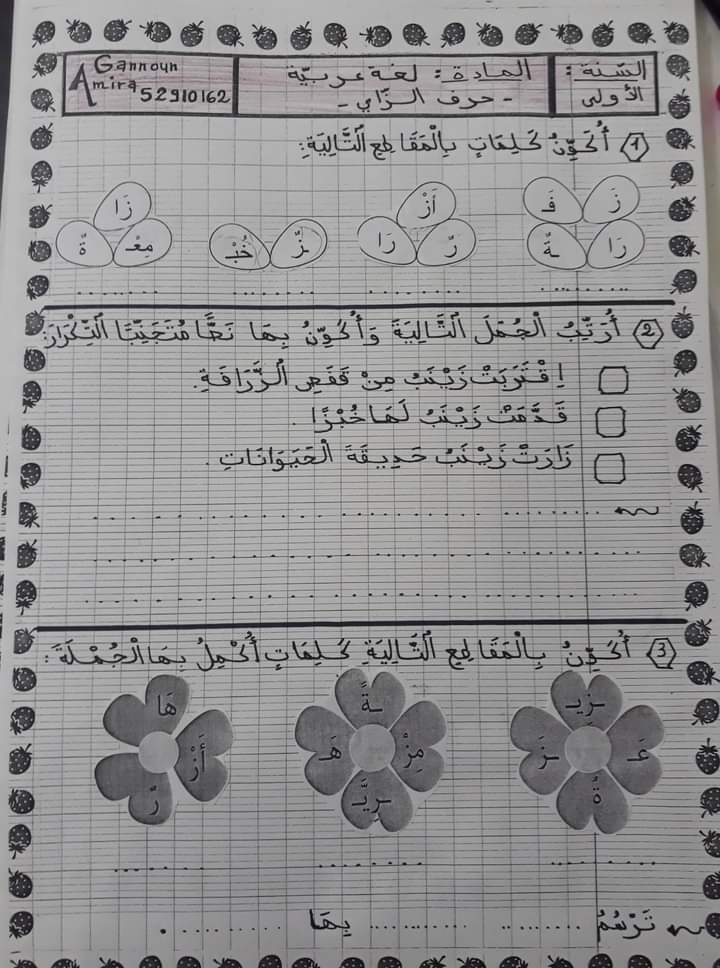 السّنة: المادة: لغة عربيّة Gannoun
الأولى - حرف الزّاي - Amira 52910162
1 أُكَوِّنُ كَلِمَاتٍ بِالْمَقَاطِعِ التَّالِيَةِ:
زَ فَ أَزْ زَا
رَا ةٌ رٌ رَا زٌ خُبْ مِعْ ةٌ
2 أُرَتِّبُ الْجُمَلَ التَّالِيَةَ وَأُكَوِّنُ بِهَا نَصًّا مُتَجَنِّبًا التِّكْرَارَ
اِقْتَرَبَتْ زَيْنَبُ مِنْ قَفَصِ الزَّرَافَةِ.
قَدَّمَتْ زَيْنَبُ لَهَا خُبْزًا.
زَارَتْ زَيْنَبُ حَدِيقَةَ الْحَيَوَانَاتِ.
3 أُكَوِّنُ بِالْمَقَاطِعِ التَّالِيَةِ كَلِمَاتٍ أُكْمِلُ بِهَا الْجُمْلَةَ:
ـزِيـ ـةً هَا
ـزَ عَـ هَـ مِزْ أَزْ
ةُ ـرِيَّـ رٌ
تَرْسُمُ .......... .......... بِهَا ..........